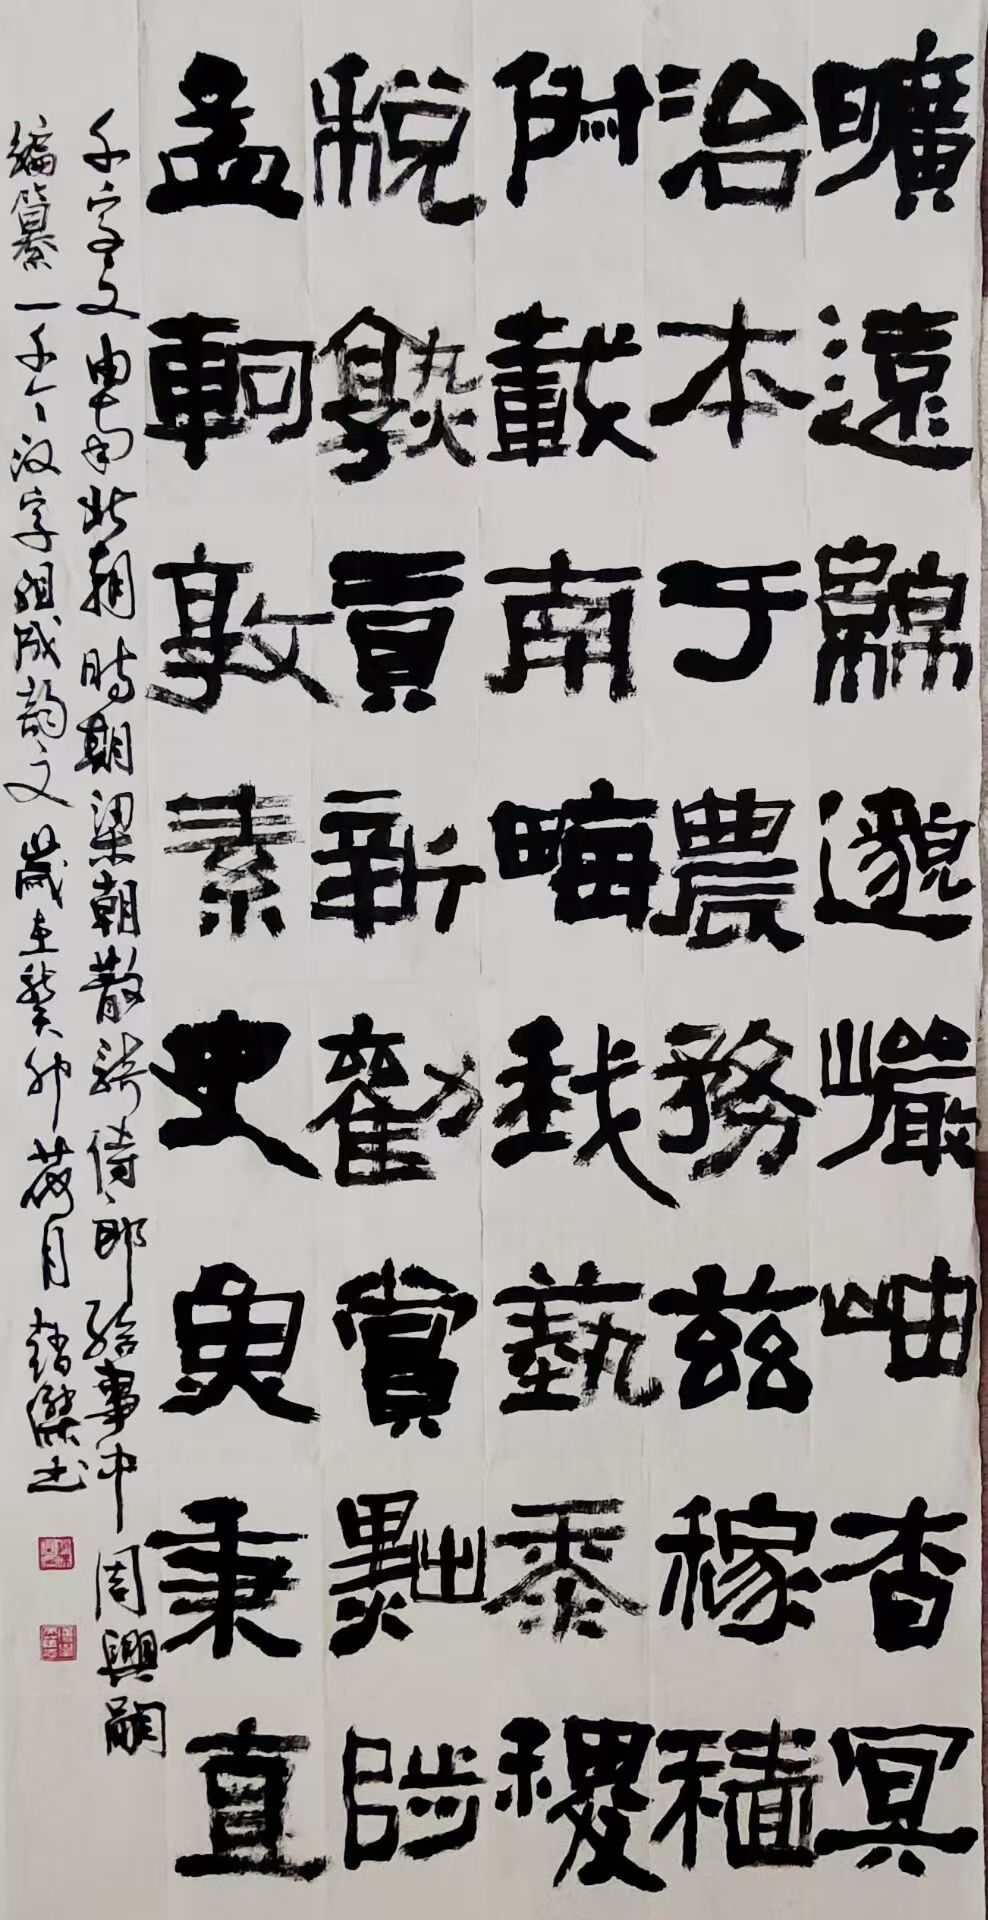 曠遠緜邈巖岫杳冥
治本于農務兹稼穡
俶載南畮我藝黍稷
稅熟貢新勸賞黜陟
孟軻敦素史魚秉直
千字文由南北朝時期梁朝散騎侍郎給事中周興嗣
編纂一千个汉字组成韵文歲在癸卯荷月書